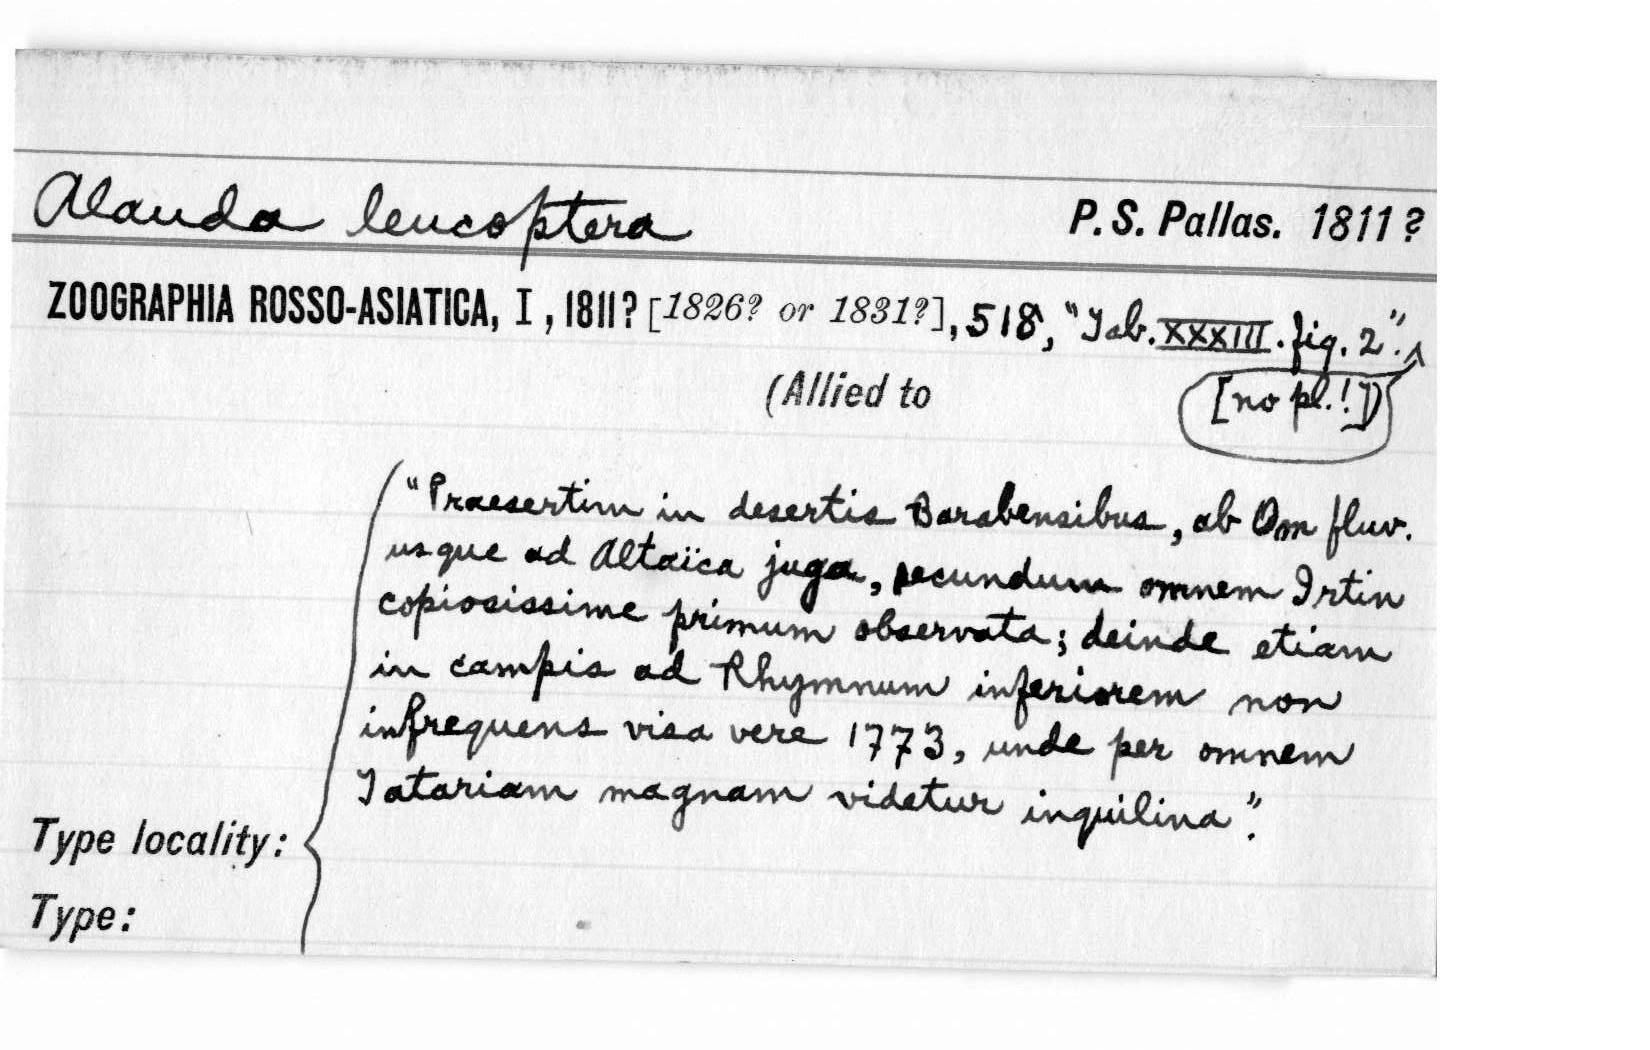 Alauda leucoptera P. S. Pallas. 1811?
ZOOGRAPHIA ROSSO-ASIATICA, I, 1811? [1826? or 1831?], 518, "Tab. XXXIII. fig. 2".^
(Allied to [no pl.!])
"Praesertim in desertis Barabensibus, ab Om fluv.
usque ad Altaïca juga, secundum omnem Irtin
copiosissime primum observata; deinde etiam
in campis ad Rhymnum inferiorem non
infrequens visa vere 1773, unde per omnem
Tatariam magnam videtur inquilina".
Type locality:
Type: